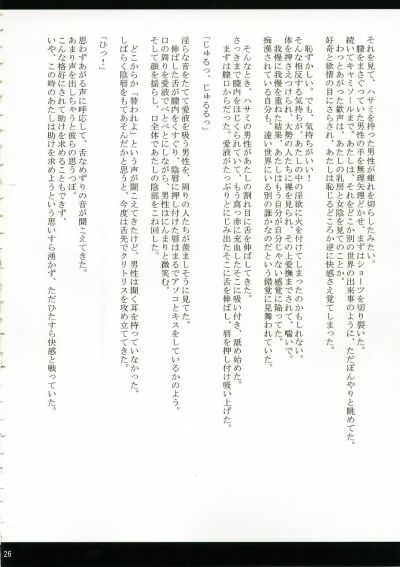 それを見て、ハサミを持った男性が痺れを切らしたみたい。
膣をまさぐっていた男性の手を無理矢理どかせ、まずはショーツを切り裂いた。
続いてハサミはミニスカートまで。あたしは、それをどこか別の世界の出来事のように、ただぼんやりと眺めてた。
わっとあがった歓声は、あたしの乳房と女陰を見てのことか。
好奇と欲情の目にさらされて、あたしは恥じるどころか逆に快感さえ覚えてしまった。
恥ずかしい。でも、気持ちがいい！
そんな相反する気持ちが、あたしの中の淫欲に火を付けてしまったのかもしれない。
体を押さえつけられ、大勢の人たちに裸を見られ、その上愛撫までされて、喘いで。
我慢に我慢を重ねた結果、あたしはもう自分が自分じゃない感覚に陥ってた。
痴漢されている自分が、遠い世界にいる別の誰かなのだという錯覚に見舞われていた。
そんなとき、ハサミの男性があたしの割れ目に舌を伸ばしてきた。
さっきまで膣内をほじくられていて、もう真っ赤に充血したそこに吸い付き、舐め始めた。
まずは口からだった。愛液がたっぷりとにじみ出たそこに舌を伸ばし、唇を押し付け吸い上げた。
「じゅるるっ、じゅるるるっ」
淫らな音をたてて愛液を吸う男性を、周りの人たちが羨ましそうに見てた。
伸ばした舌が膣内をくすぐり、陰唇に押し付けた唇はまるでアソコとキスをしているかのよう。
口の周りを愛液でべとべとにしながら、男性はにんまりと微笑む。
そして顔を揺らし、口全体であたしの陰部をこね回した。
どこからか「替われよ」という声が聞こえてきたけど、男性は聞く耳を持っていなかった。
しばらく陰唇をもてあそんだかと思うと、今度は舌先でクリトリスを攻め立ててきた。
「ひっ！」
思わずあがった声に呼応して、舌なめずりの音が聞こえてきた。
あんまり声を出しちゃうと彼らの思うつぼ。
こんな格好にされて助けを求めることもできず、
いや、この時のあたしは助けを求めようという思いすら湧かず、ただひたすら快感と戦っていた。
26